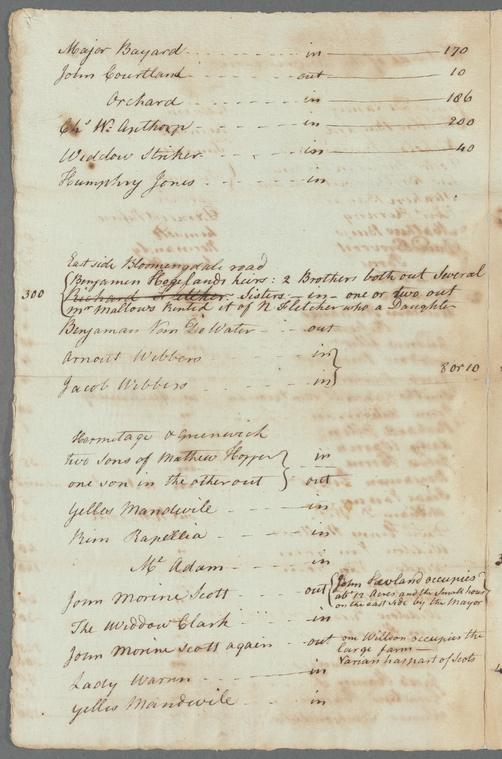 Major Bayard in 170
John Courtland out 10
Orchard in 186
Chs. Wd. Anthorp in 200
Widdow Striker in 40
Humphry Jones in
East side Bloomengdale road
Benjamen Hogelands heirs: 2 Brothers both out Several
300 Richard Fletcher Sisters - in - one or two out
mr Mallows Rented it of N Fletcher who a Daughter
Benjaman Van De Water out
Arnout Webbers in
8 or 10
Jacob Webbers in
Hormitage & Greenwich
two sons of Mathew Hopper in
one son in the other out out
Yelles Mandevile in
Rem Rapellia in
Mr Adam in
John Morine Scott out John occupies
abt 12 Acres and the Small house
on the east side by the Mayor
The Widdow Clark in
John Morine Scott again out one Willson occupies the
large farm—
Varian has part of Scots
Lady Warrin in
Yelles Mandevile in